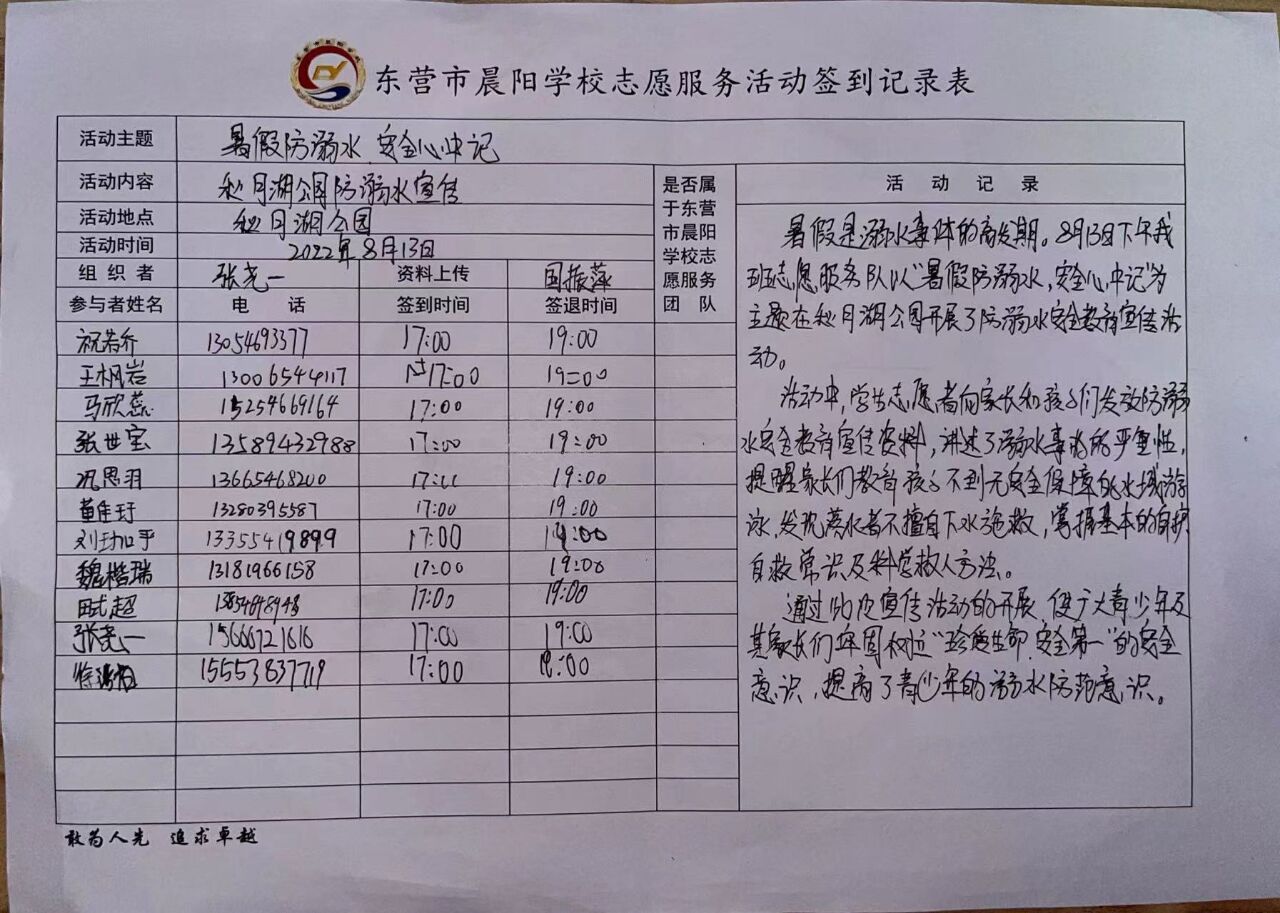 东营市晨阳学校志愿服务活动签到记录表
活动主题 暑假防溺水,安全心中记
活动内容 秋月湖公园防溺水宣传
活动地点 秋月湖公园
活动时间 2022年8月13日
组织者 张尧一 资料上传 国振萍
参与者姓名 电话 签到时间 签退时间
是否属
于东营
市晨阳
学校志
愿服务
团队
祝若乔 13054693377 17:00 19:00
王枫岩 13006544117 17:00 19:00
马欣蕊 15254669164 17:00 19:00
张世宝 13589432988 17:00 19:00
况思羽 13665468200 17:00 19:00
董佳玗 13280395587 17:00 19:00
刘珈乎 13355419899 17:00 19:00
魏楷瑞 13181966158 17:00 19:00
田式超 17:00 19:00
张尧一 15666721616 17:00 19:00
徐 15553837719 17:00 19:00
活动记录
暑假是溺水事体的高发期。8月13日下午我
班志愿服务队以“暑假防溺水,安全心中记”为
主题在秋月湖公园开展了防溺水安全教育宣传活
动。
活动中,学生志愿者向家长和孩子们发放防溺
水安全教育宣传资料,讲述了溺水事故的严重性,
提醒家长们教育孩子不到无安全保障的水域游
泳,发现落水者不擅自下水施救,掌握基本的自护
自救常识及科学救人方法。
通过此次宣传活动的开展,使广大青少年及
其家长们牢固树立“珍惜生命,安全第一”的安全
意识,提高了青少年的溺水防范意识。
敢为人先 追求卓越